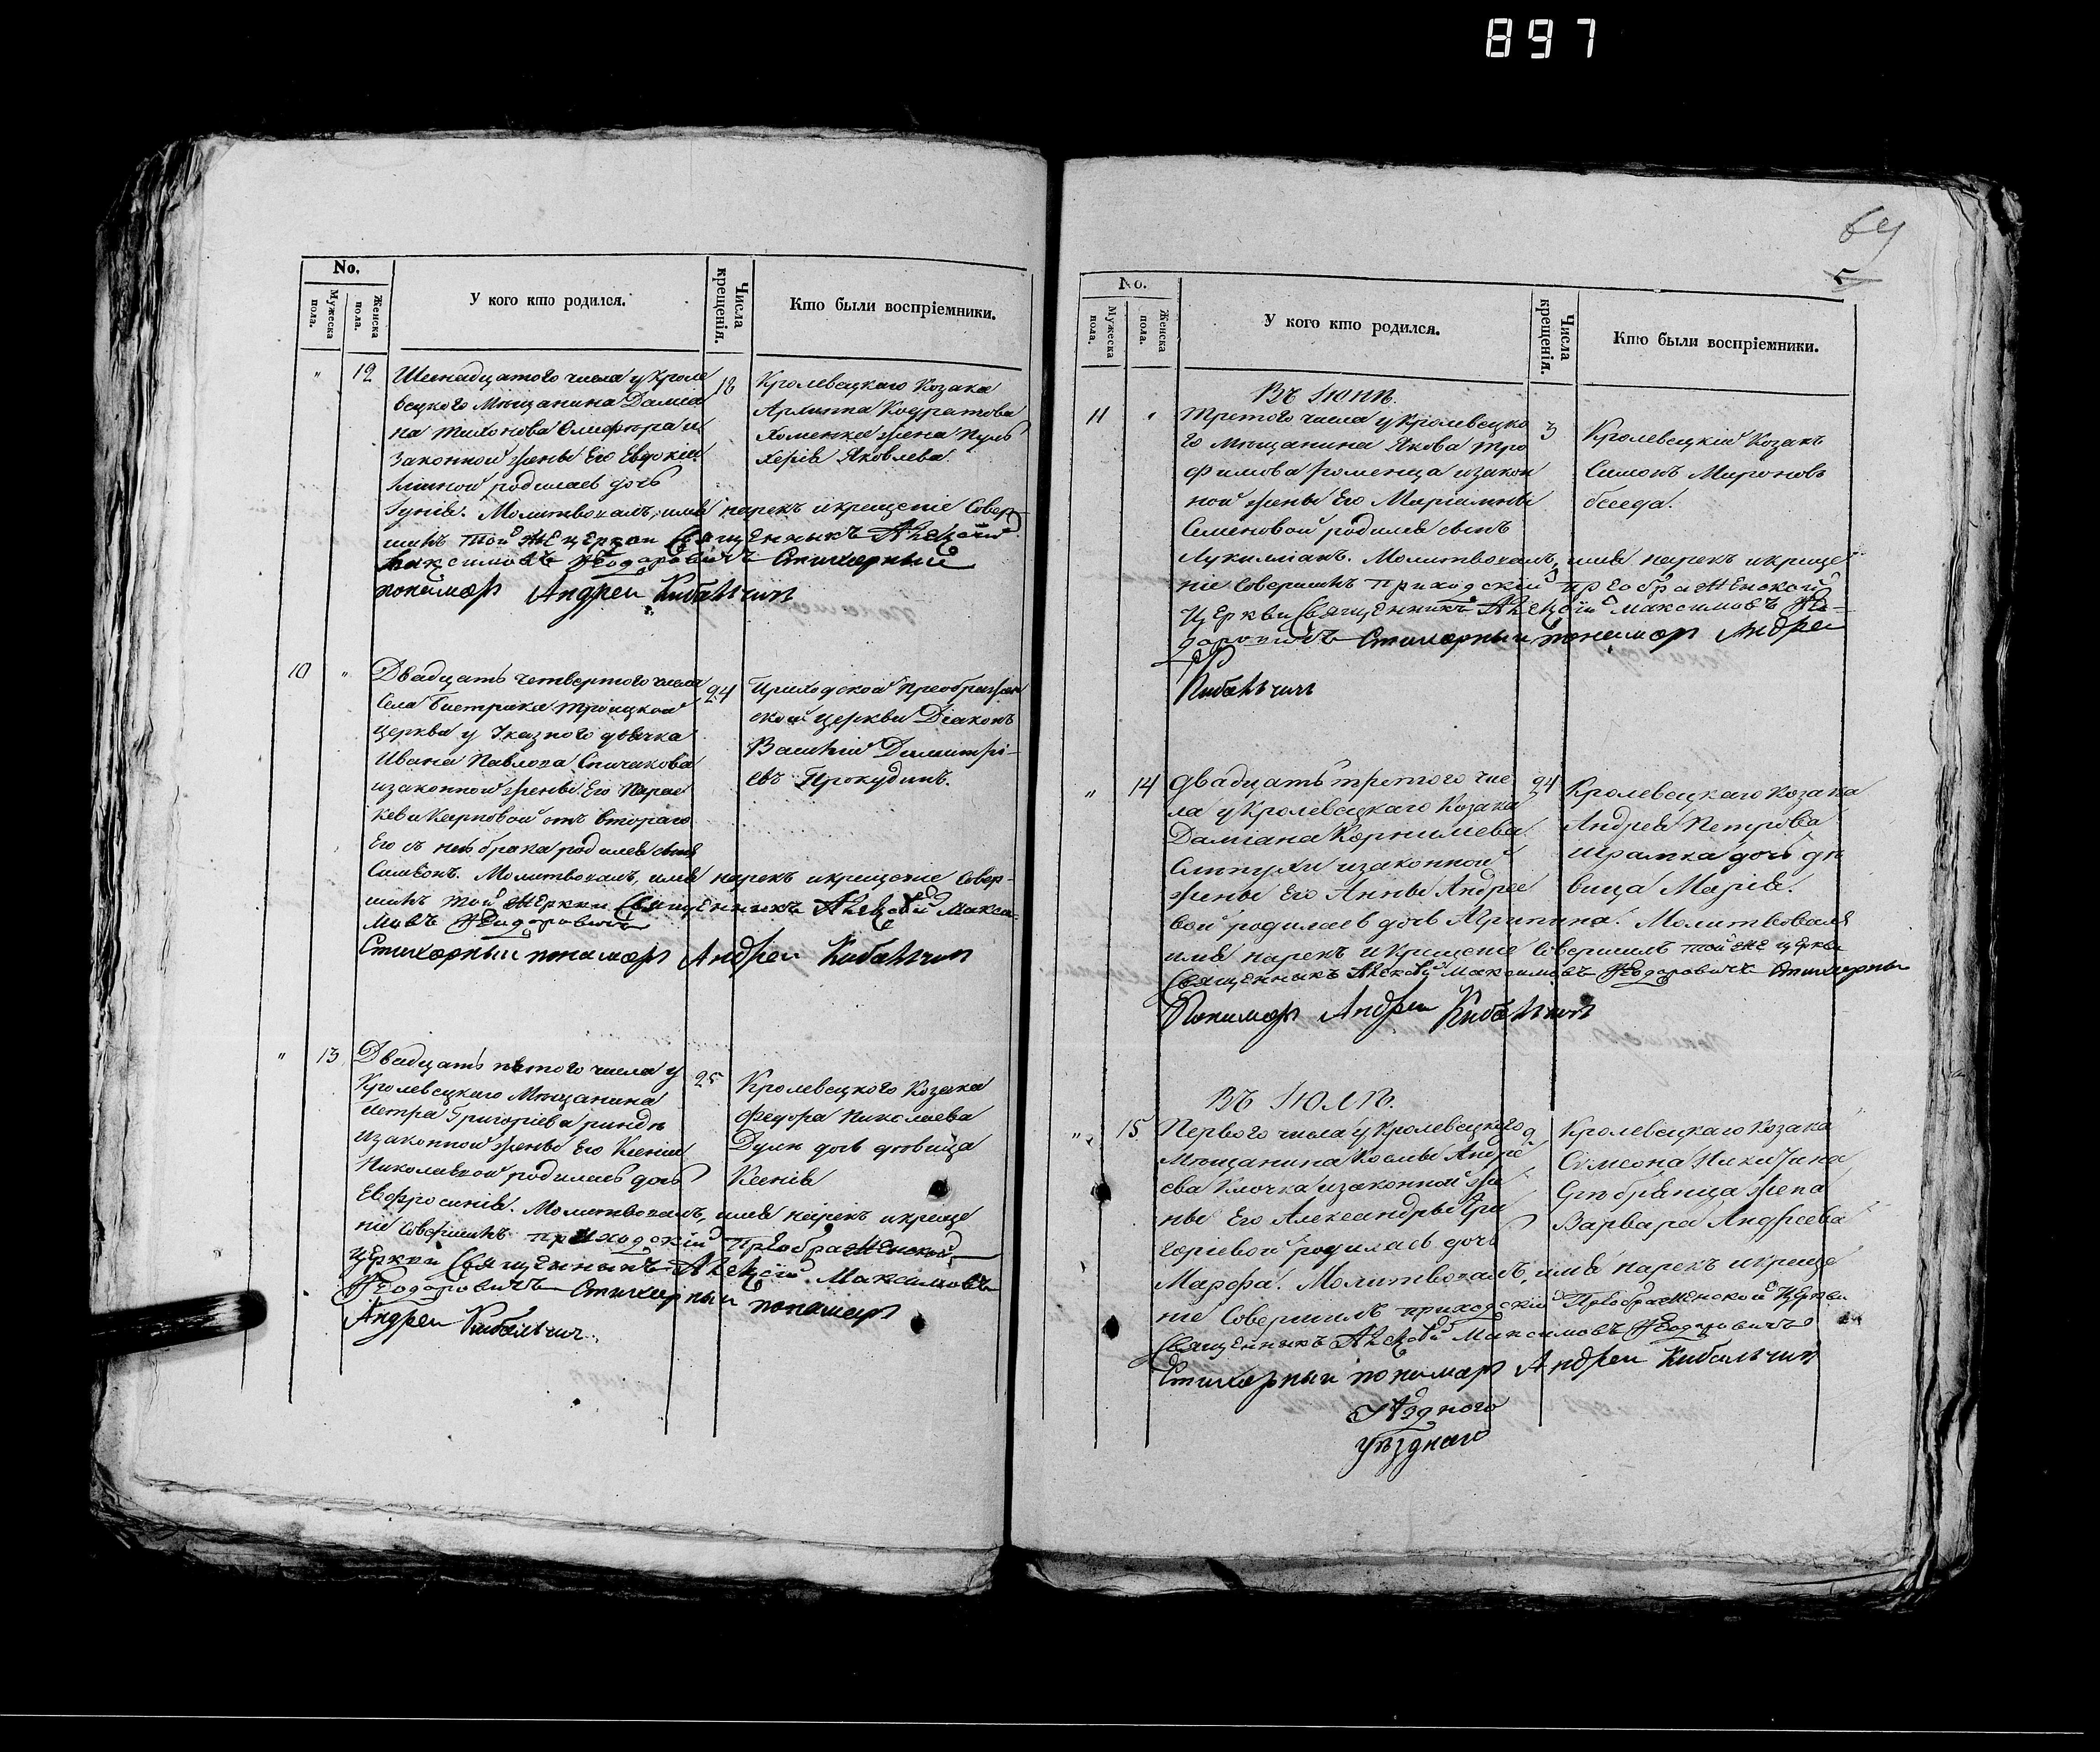 897
No.
Мужеска пола.
Женска пола.
У кого кто родился.
Числа крещенія.
Кто были воспріемники.
" 12 18
Шеснадцатого числа у Кроле
вецкого Мѣщанина Даміа
на Тихонова Олифѣра и
Законной жены Его Евдокіи
родилась дочь
Іунія. Молитвовалъ, имя нарекъ и крещеніе Совер-
шилъ той же церкви Священникъ Алексѣй
Максимовъ Ѳеодоровичъ Стихарный
пономарь Андрей Кибальчичъ
Кролевецкаго Козака
Архиппа Кодратова
Хоменка жена Пуль
херія Яковлева.
10 " 24
Двадцать четвертого числа
Села Быстрика Троицкой
церкви у Указного дьячка
Ивана Павлова Спичакова
и законной жены Его Парас
кеви Карповой отъ втораго
Его съ нею брака родился сынъ
Симеонъ. Молитвовалъ, имя нарекъ и крещеніе Совер-
шилъ той же церкви Священникъ Алексѣй Макси-
мовъ Ѳеодоровичъ
Стихарный пономарь Андрей Кибальчичъ
Приходской Преображен
ской церкви Діаконъ
Василій Димитрі-
евъ Прокудинъ.
" 13 25
Двадцать пятого числа у
Кролевецкаго Мѣщанина
Петра Григоріева Риндѣ
и законной жены Его Ксеніи
Николаевой родилась дочь
Евфросинія. Молитвовалъ, имя нарекъ и креще
ніе Совершилъ приходскій Преображенской
церкви Священникъ Алексѣй Максимовъ
Ѳеодоровичъ Стихарный пономарь
Андрей Кибальчич.
Кролевецкого Козака
Федора Николаева
Дули дочь дѣвица
Ксенія
64
5
No.
Мужеска пола.
Женска пола.
У кого кто родился.
Числа крещенія.
Кто были воспріемники.
Въ Іюнѣ.
11 " 3
Третого числа у Кролевецко
го Мѣщанина Якова Тро
фимова Роменца и закон
ной жены Его Маріамны
Семеновой родился сынъ
Лукилліанъ. Молитвовалъ, имя нарекъ и креще
ніе Совершилъ приходскій преображенской
Церкви Священникъ Алексѣй Максимовъ Ѳео-
доровичъ Стихарный пономарь Андрей
Кибальчичъ
Кролевецкій Козакъ
Симонъ Мироновъ
беседа.
" 14 24
Двадцать третого чис
ла у Кролевецкаго Козака
Даміана Корнилиева
и законной
жены Его Анны Андрее
вой родилась дочь Агрипина. Молитвовалъ
имя нарекъ и Крещеніе Совершилъ той же церкви
Священникъ Алексѣй Максимовъ Ѳеодоровичъ Стихарны
Пономарь Андрей Кибальчичъ
Кролевецкаго Козака
Андрея Петрова
Шрамка дочь дѣ
вица Марія.
Въ Іюлѣ.
" 15 2
Первого числа у Кролевецкого
Мѣщанина Космы Андре
ева Клочка и законной же
ны Его Александры Гри
горіевой родилась дочь
Марфа. Молитвовалъ, имя нарекъ и креще
ніе Совершилъ приходскій Преображенской Церкви
Священникъ Алексѣй Максимовъ Ѳеодоровичъ
Стихарный пономарь Андрей Кибальчичъ
Кролевецкаго Козака
Симеона Никитина
Сребранца жена
Варвара Андреева
уѣзднаго